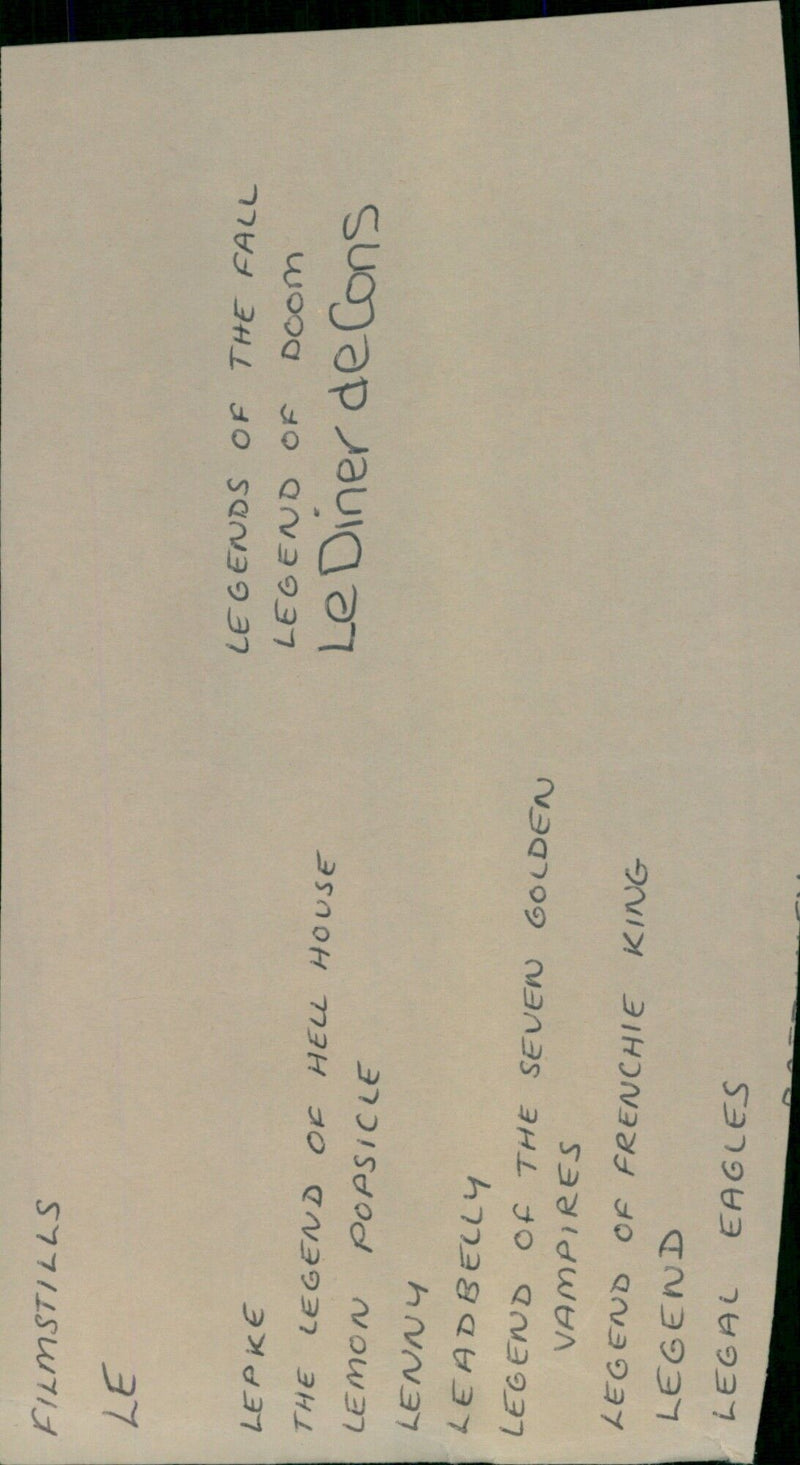 FILMSTILLS
LE
LEPKE
THE LEGEND OF HELL HOUSE
LEMON POPSICLE
LENNY
LEADBELLY
LEGEND OF THE SEVEN GOLDEN
VAMPIRES
LEGEND OF FRENCHIE KING
LEGEND
LEGAL EAGLES
LEGENDS OF THE FALL
LEGEND OF DOOM
Le Diner de Cons